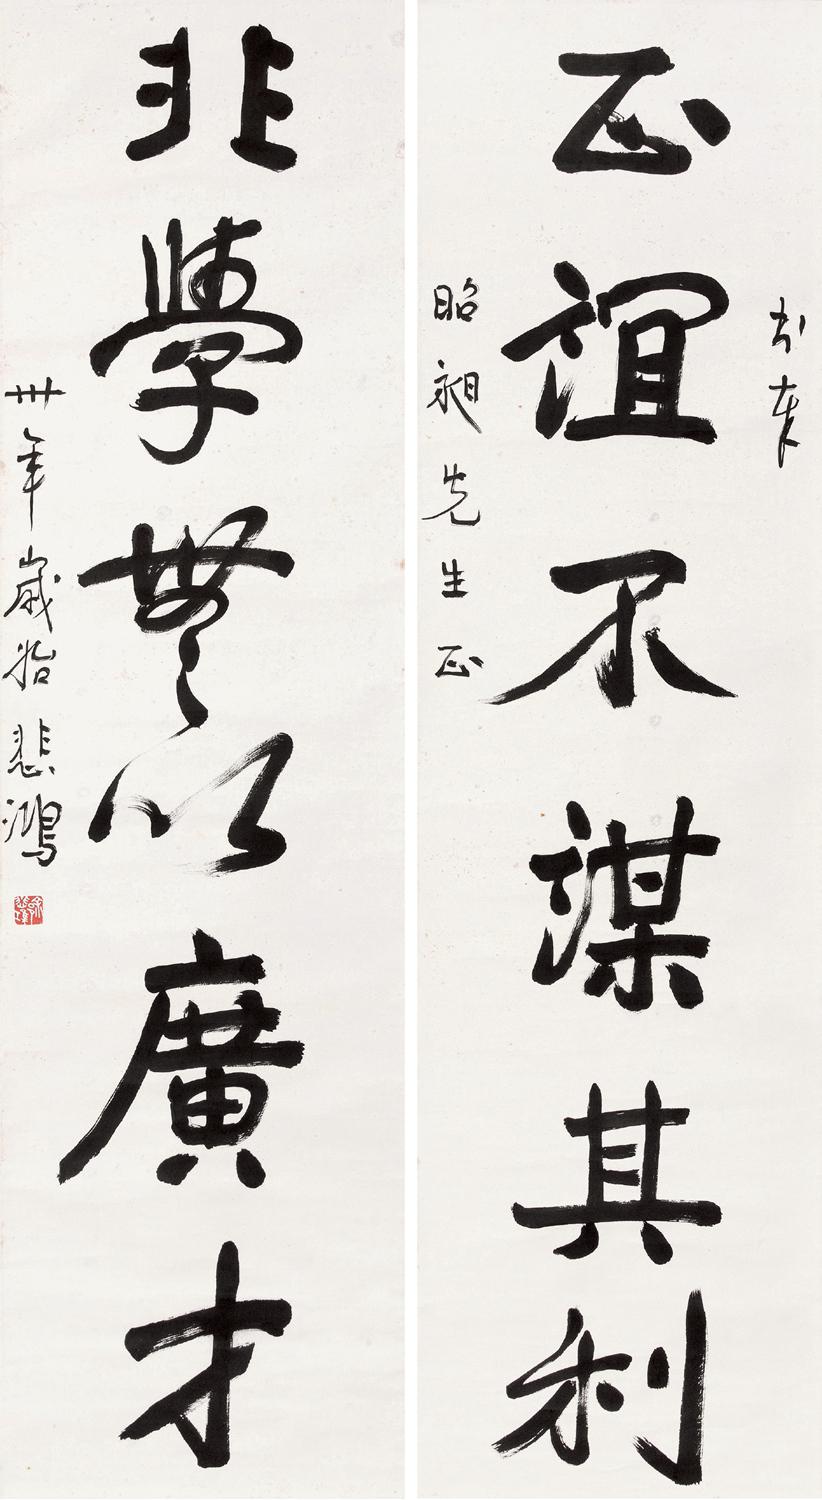 書奉
正誼不謀其利
昭昶先生正
非學無以廣才
卅年歲始 悲鴻